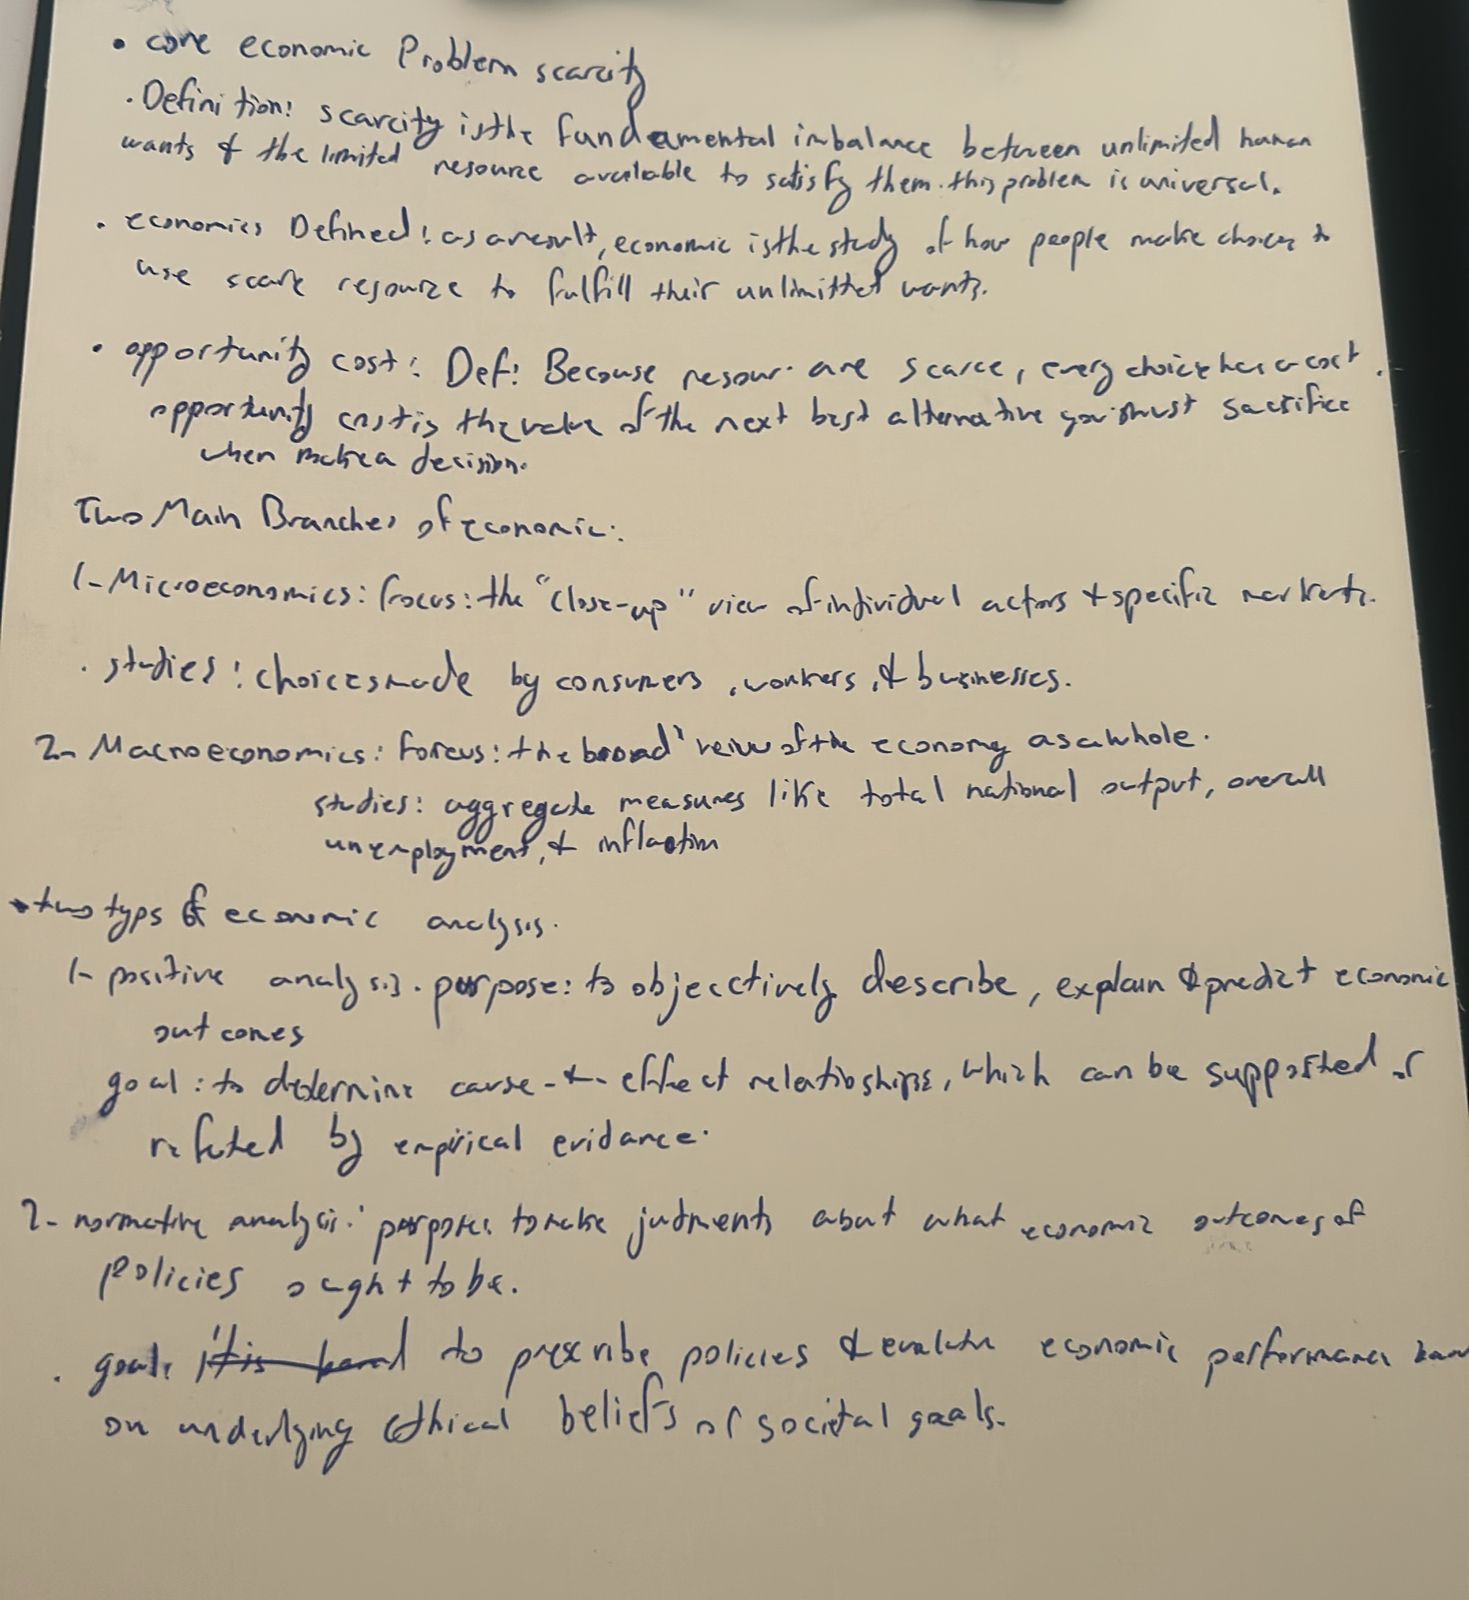 • core economic Problem scarcity
. Definition: scarcity is the fundamental imbalance between unlimited human
wants & the limited resource available to satisfy them. this problem is universal.
. economics Defined: as a result, economic is the study of how people make choices to
use scare resource to fulfill their unlimitted wants.
• opportunity cost: Def: Because resour. are scarce, every choice has a cost.
opportunity cost is the value of the next best alternative you must sacrifice
when make a decision.
Two Main Branches of economic:
1- Microeconomics: focus: the "close-up" view of individual actors & specific markets.
. studies: choices made by consumers, workers, & businesses.
2- Macroeconomics: Forcus: the broad" veiw of the economy as a whole.
studies: aggregate measures like total national output, overall
unemployment, & inflaction
• two typs of economic analysis.
1- positive analysis. purpose: to objecctively describe, explain & predict economic
outcomes
goal: to determine cause-&-effect relatioships, which can be supported or
refuted by empirical evidance.
2- normative analysis: purpose: to make judments about what economic outcomes of
policies ought to be.
. goal: to prescribe policies & evaluate economic performance
on underlying ethical beliefs or societal goals.